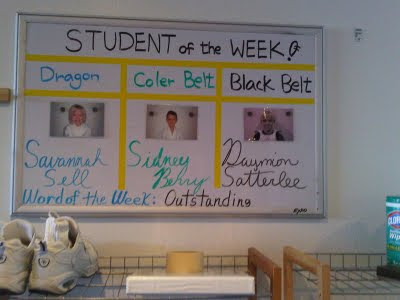 STUDENT of the WEEK!
Dragon
Coler Belt
Black Belt
Savannah
Sell
Sidney
Berry
Daymion
Satterlee
Word of the Week: Outstanding
CLOROX